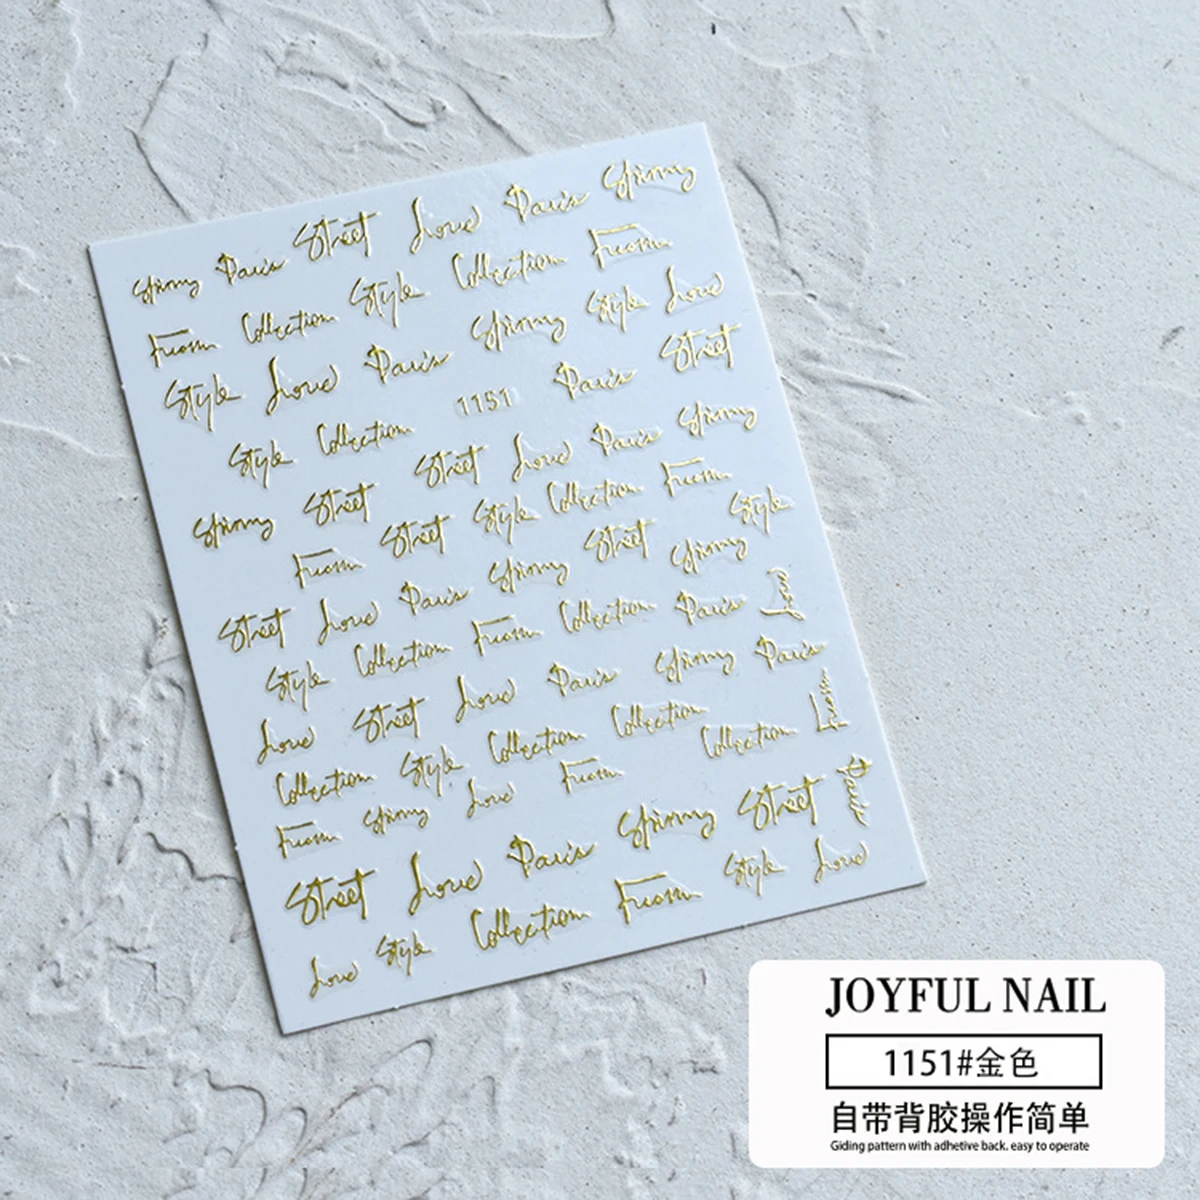 Skinny Paris Street Love Paris Skinny
From Collection Style Collection From
Style Love Paris Skinny Style Love
1151 Paris Street
Style Collection Street Love Paris Skinny
Skinny Street Street Style Collection From Style
From Paris Skinny Street Skinny
Street Love Collection From Collection Paris Love
Style Street Love Paris Skinny Paris
Love Style Collection Collection Collection From
Collection Skinny Love From Street Paris
From Paris Skinny Style Love
Street Love Collection From
Love Style
JOYFUL NAIL
1151#金色
自带背胶操作简单
Giding pattern with adhetive back. easy to operate